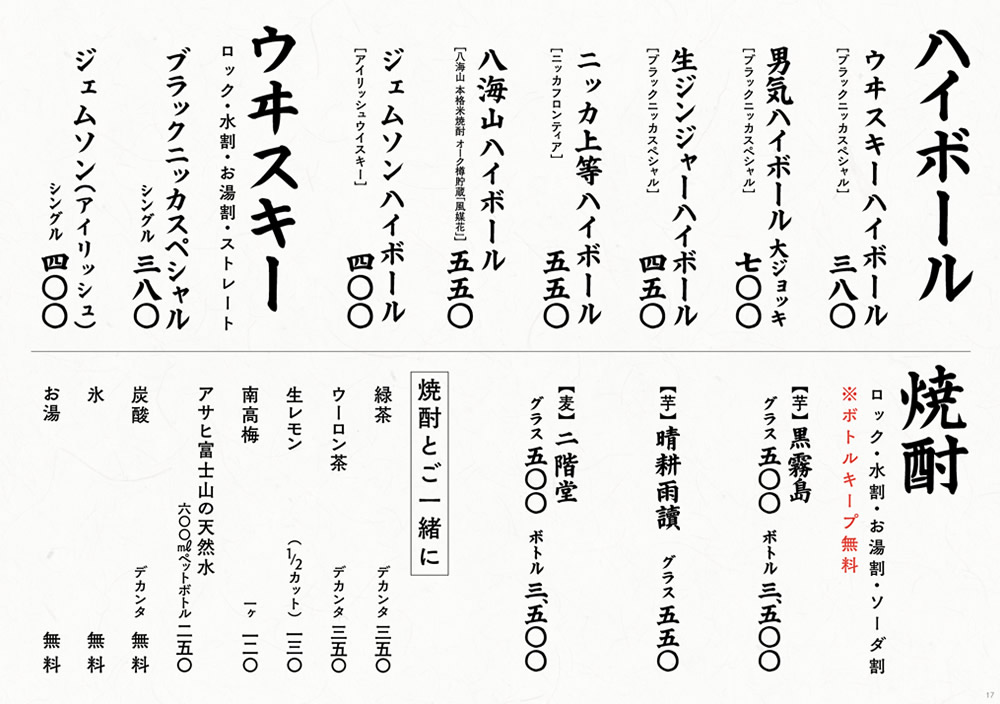 ハイボール
ウヰスキーハイボール
［ブラックニッカスペシャル］
三八〇
男気ハイボール 大ジョッキ
［ブラックニッカスペシャル］
七〇〇
生ジンジャーハイボール
［ブラックニッカスペシャル］
四五〇
ニッカ上等ハイボール
［ニッカフロンティア］
五五〇
八海山ハイボール
［八海山 本格米焼酎 オーク樽貯蔵「風媒花」］
五五〇
ジェムソンハイボール
［アイリッシュウイスキー］
四〇〇
ウヰスキー
ロック・水割・お湯割・ストレート
ブラックニッカスペシャル
シングル 三八〇
ジェムソン（アイリッシュ）
シングル 四〇〇
焼酎
ロック・水割・お湯割・ソーダ割
※ボトルキープ無料
【芋】黒霧島
グラス 五〇〇 ボトル 三、五〇〇
【芋】晴耕雨讀 グラス 五五〇
【麦】二階堂
グラス 五〇〇 ボトル 三、五〇〇
焼酎とご一緒に
緑茶 デカンタ 三五〇
ウーロン茶 デカンタ 三五〇
生レモン （1/2カット） 一三〇
南高梅 一ヶ 一二〇
アサヒ富士山の天然水
六〇〇mlペットボトル 二五〇
炭酸 デカンタ 無料
氷 無料
お湯 無料
17